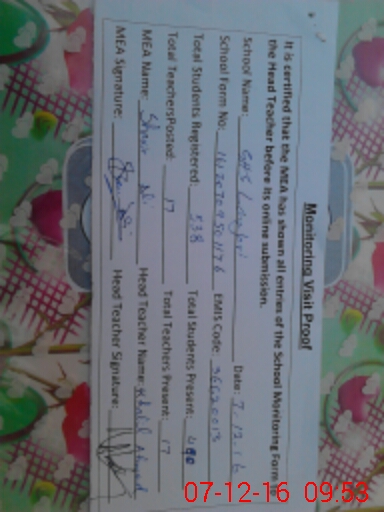 Monitoring Visit Proof
It is certified that the MEA has shown all entries of the School Monitoring Form to
the Head Teacher before its online submission.
School Name: GHS Date: 7.12.16
School Form No: EMIS Code:
Total Students Registered: 538 Total Students Present: 490
Total TeachersPosted: 17 Total Teachers Present: 17
MEA Name: Head Teacher Name: Khalil Ahmad
MEA Signature: Head Teacher Signature:
07-12-16 09:53